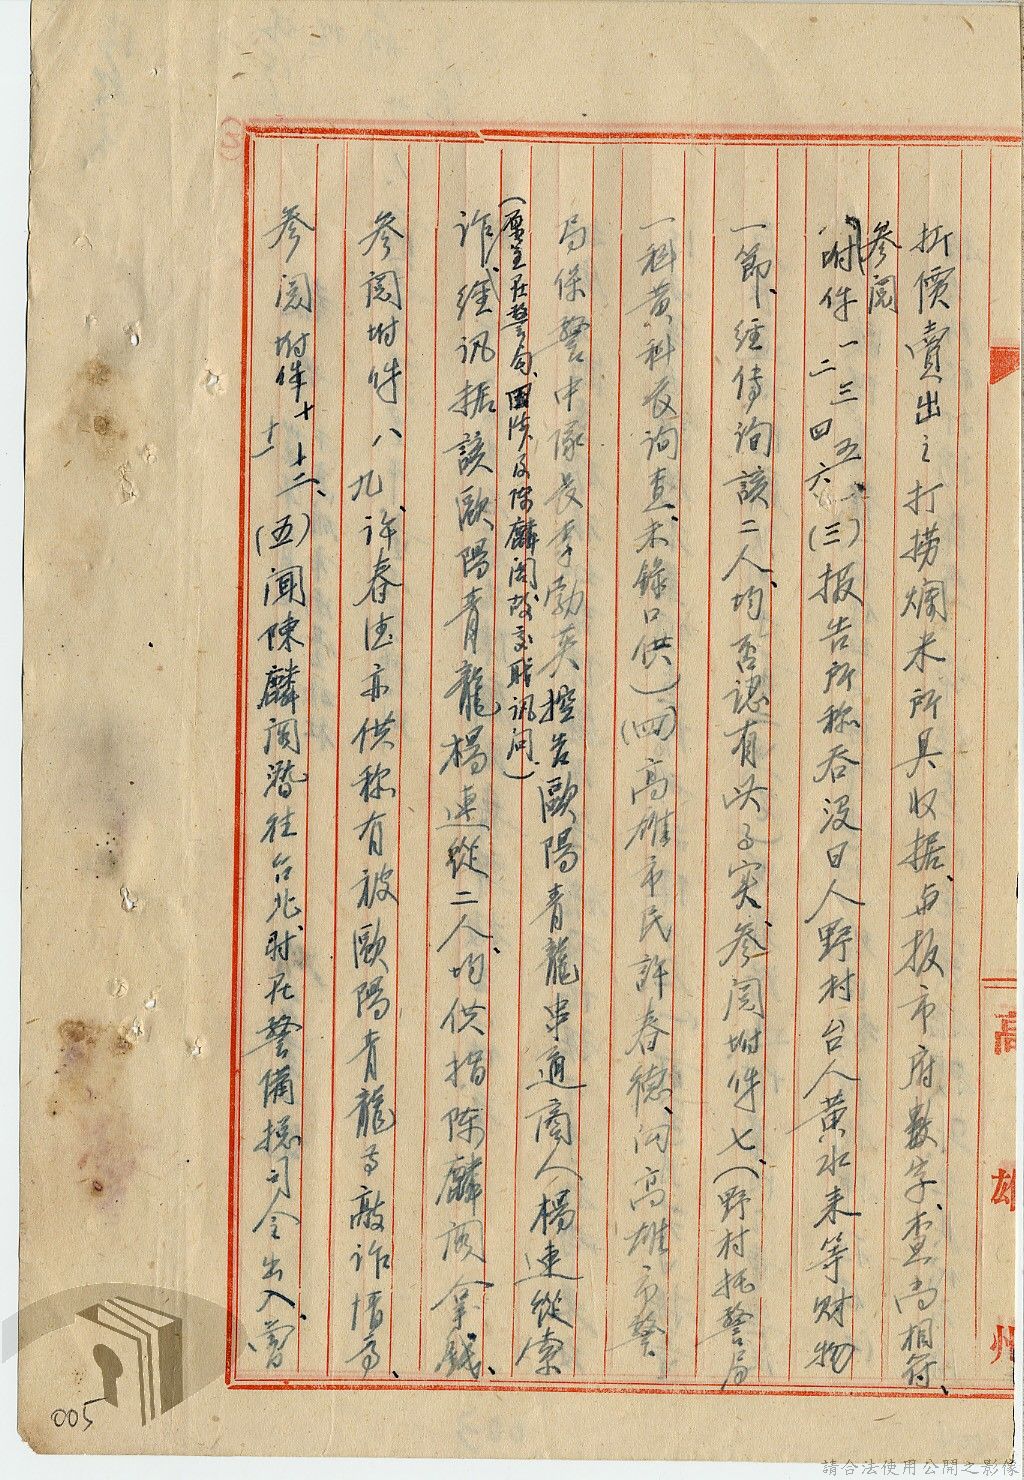 高雄州
折價賣出之打撈爛米所具收据、与报市府數字、查尚相符、
參閱
附件一二三四五六、(三)报告所称吞没日人野村台人黃水来等财物
一節、經傳詢該二人、均否認有此事实、參閱附件七、(野村抵警局
一科黃科長詢查、未錄口供)(四)高雄市民許春德、向高雄市警
局保警中隊長李勃英控告歐陽青龍串通商人楊連從索
(原呈在警局、因涉及陳麟閣故交联讯问)
詐、經讯据該歐陽青龍楊連從二人、均供指陳麟阁拿錢、
參閱附件八九、許春德亦供称有被歐陽青龍等敲诈情事、
參閱附件十十一十二、(五)聞陳麟阁潜往台北时、在警備總司令出入、曾
005
請合法使用公開之影像